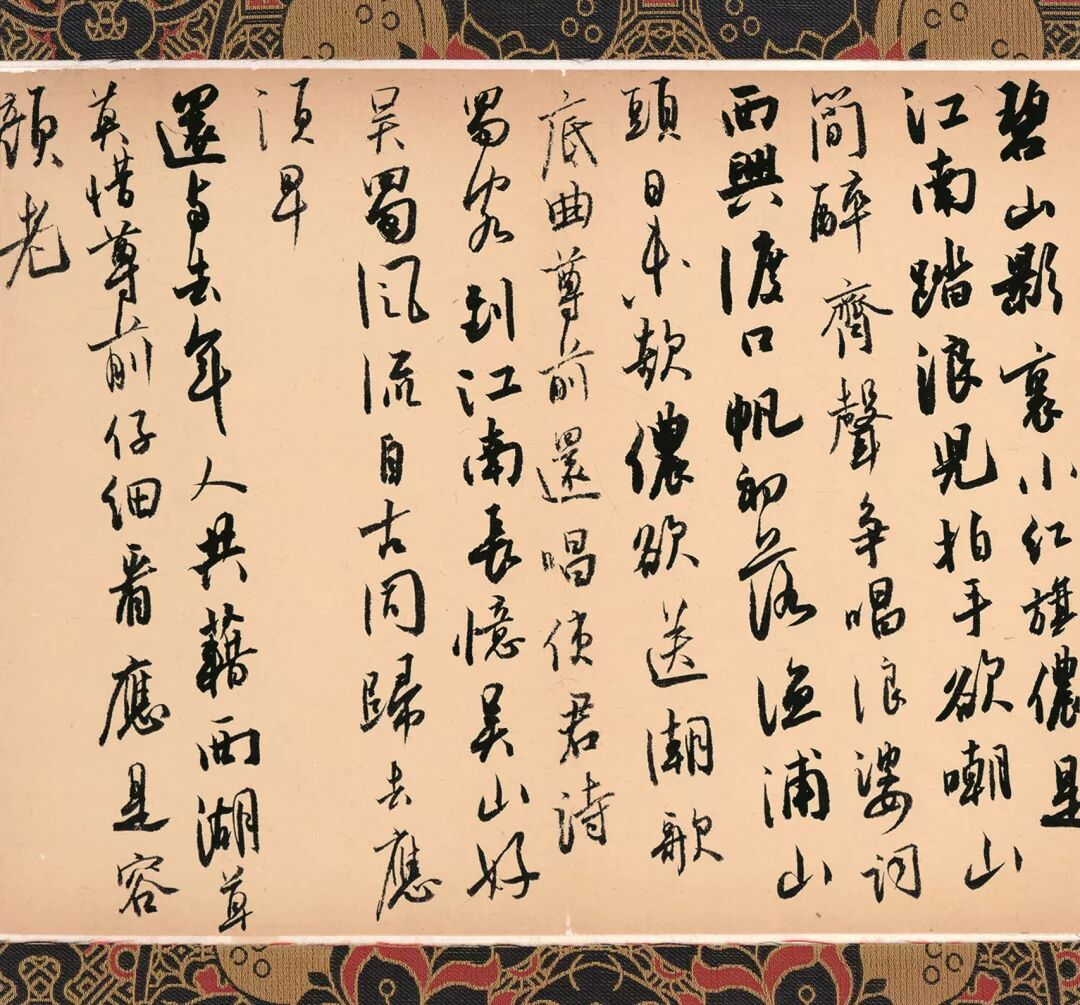 碧山影裏小红旗儂是
江南踏浪児拍手欲嘲山
簡醉齊聲争唱浪婆词
西興渡口帆初落渔浦山
頭日未欹儂欲送潮歌
底曲尊前還唱使君诗
蜀客到江南長憶吴山好
吴蜀风流自古同歸去應
須早
還与去年人共藉西湖草
莫惜尊前仔细看應是容
顔老